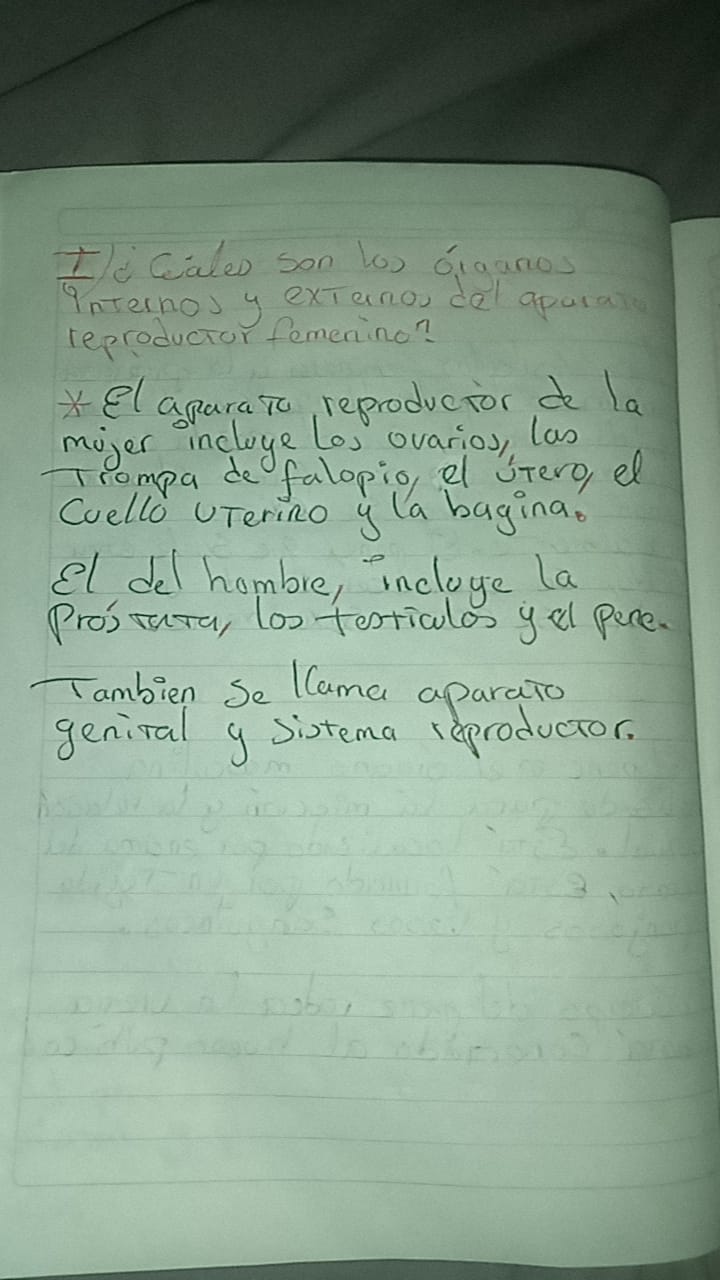 I/¿Cúales son los órganos
internos y externos del aparato
reproductor femenino?
* El aparato reproductor de la
mujer incluye los ovarios, las
Trompa de falopio, el útero, el
Cuello uterino y la bagina.
El del hombre, incluye la
Próstata, los testiculos y el pene.
Tambien se llama aparato
genital y sistema reproductor.